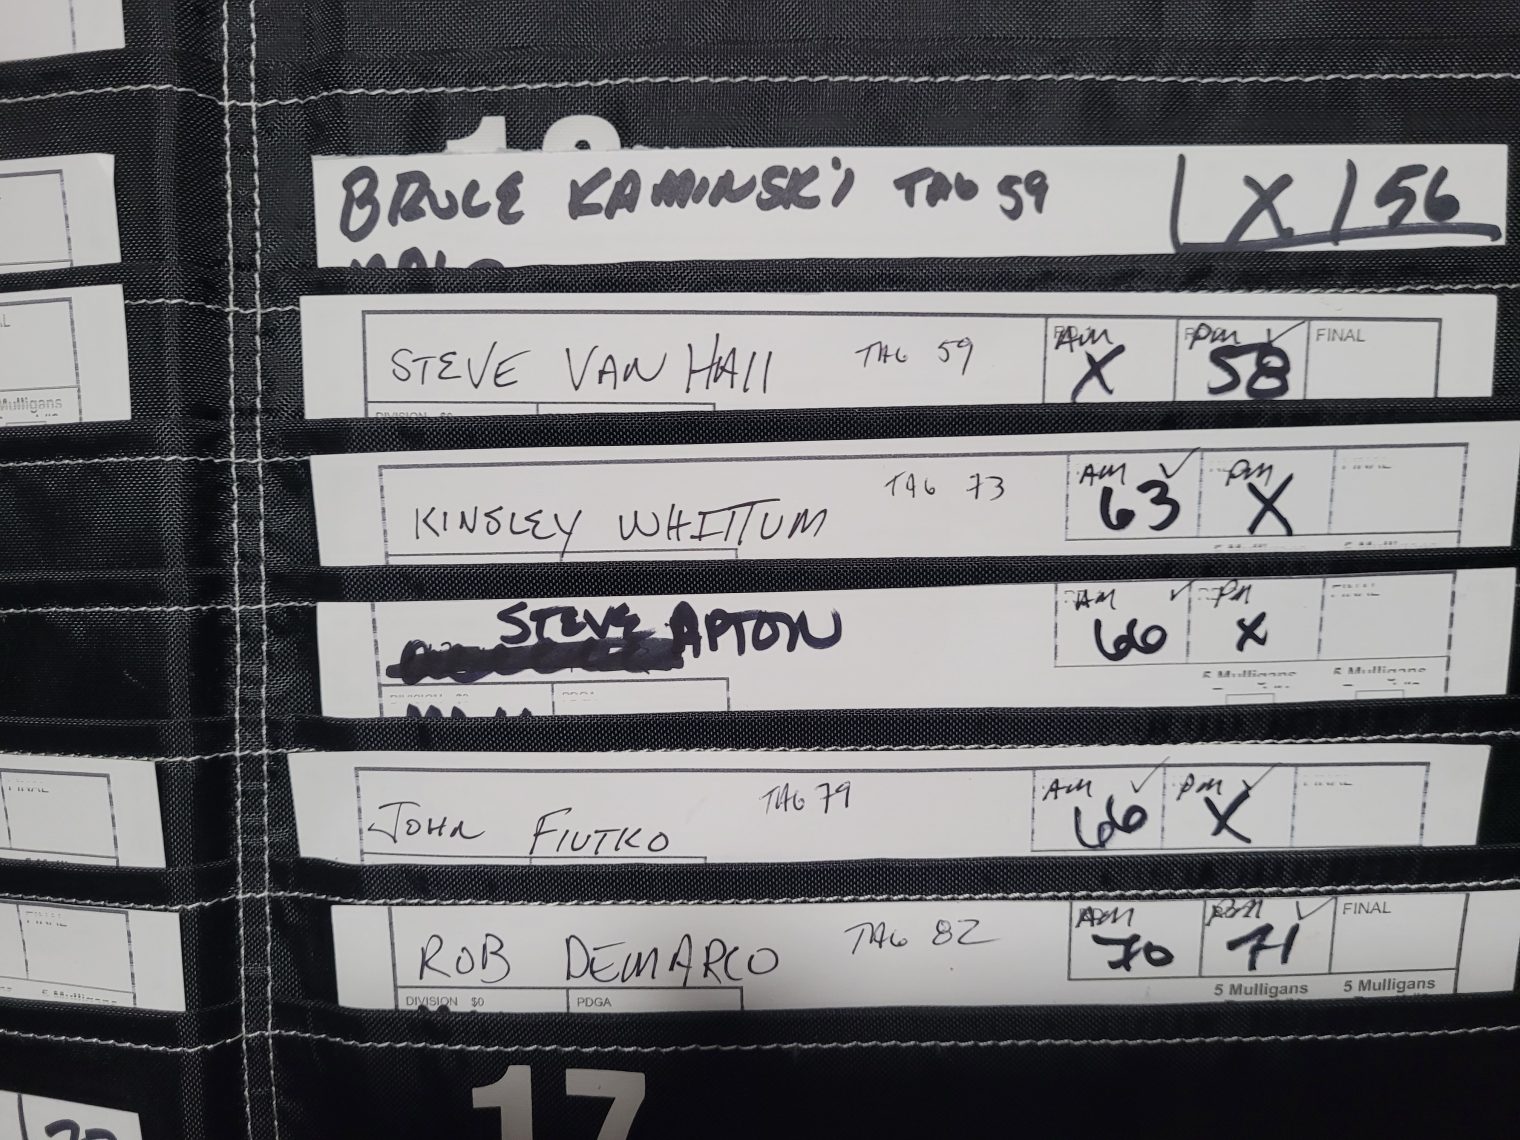 BRUCE KAMINSKI TAG 59 X 56
AM PM FINAL
STEVE VAN HALL TAG 59 X 58
DIVISION $0
AM PM FINAL
KINSLEY WHITTUM TAG 73 63 X
AM PM FINAL
STEVE APTON 66 X
5 Mulligans 5 Mulligans
DIVISION $0 PDGA
AM PM FINAL
JOHN FIUTKO TAG 79 66 X
AM PM FINAL
ROB DEMARCO TAG 82 70 71
5 Mulligans 5 Mulligans
DIVISION $0 PDGA
17
Mulligans
FINAL
FINAL
5 Mulligans